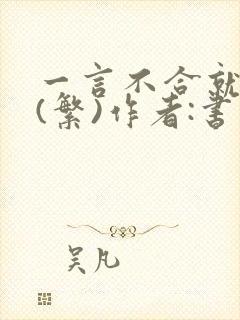 一言不合就
(繁)作者:書
吴凡